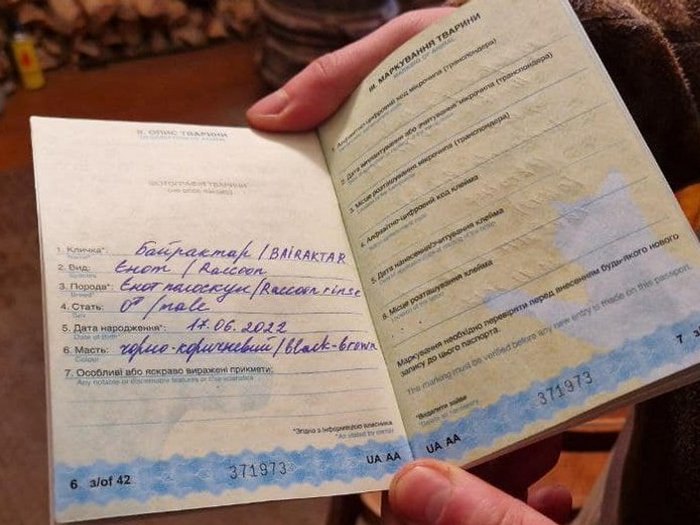 II. ОПИС ТВАРИНИ
DESCRIPTION OF ANIMAL
ФОТОГРАФІЯ ТВАРИНИ
1. Кличка*: Байрактар / BAIRAKTAR
Name*
2. Вид: Енот / Raccoon
Species
3. Порода*: Енот полоскун / Raccoon rinse
Breed*
4. Стать: ♂ / male
Sex
5. Дата народження*: 17.06.2022
Date of birth*
6. Масть: чорно-коричневий / black-brown
Colour
7. Особливі або яскраво виражені прикмети:
Any notable or discernable features or characteristics
*Згідно з інформацією власника
*As stated by owner
6 з/of 42
371973
UA AA
III. МАРКУВАННЯ ТВАРИНИ
MARKING OF ANIMAL
1. Алфавітно-цифровий код мікрочипа (транспондера)
2. Дата імплантування або зчитування* мікрочипа (транспондера)
3. Місце розташування мікрочипа (транспондера)
4. Алфавітно-цифровий код клейма
5. Дата нанесення/зчитування клейма
6. Місце розташування клейма
Маркування необхідно перевірити перед внесенням будь-якого нового
запису до цього паспорта.
The marking must be verified before any new entry is made on this passport
*Видалити зайве
UA AA
371973
7 з